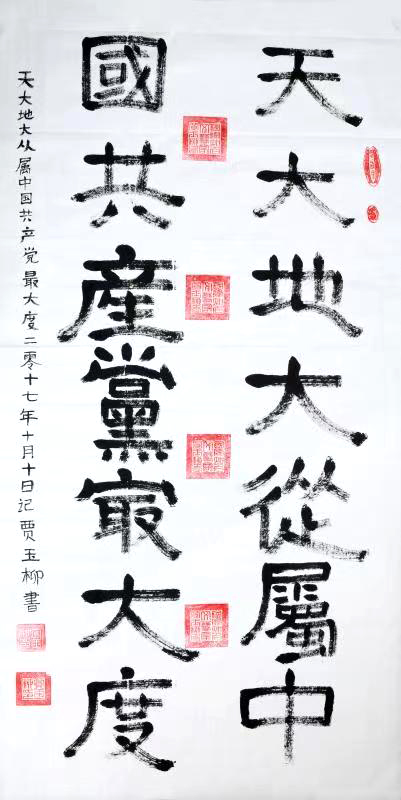 天大地大從屬中
國共產黨最大度
天大地大从属中国共产党最大度二零十七年十月十日记贾玉柳書